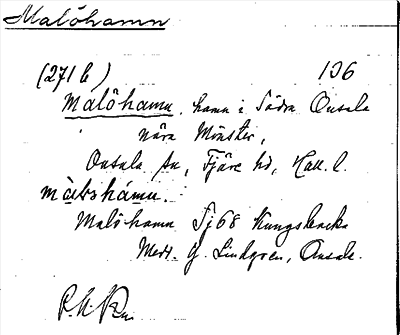 Malöhamn
(271 b) 136
Malöhamn, hamn i Södra Onsala
nära Mönster,
Onsala sn, Fjäre hd, Hall. l.
Malöhamn Sj 68 Kungsbacka
Medd. G. Lindgren, Onsala.